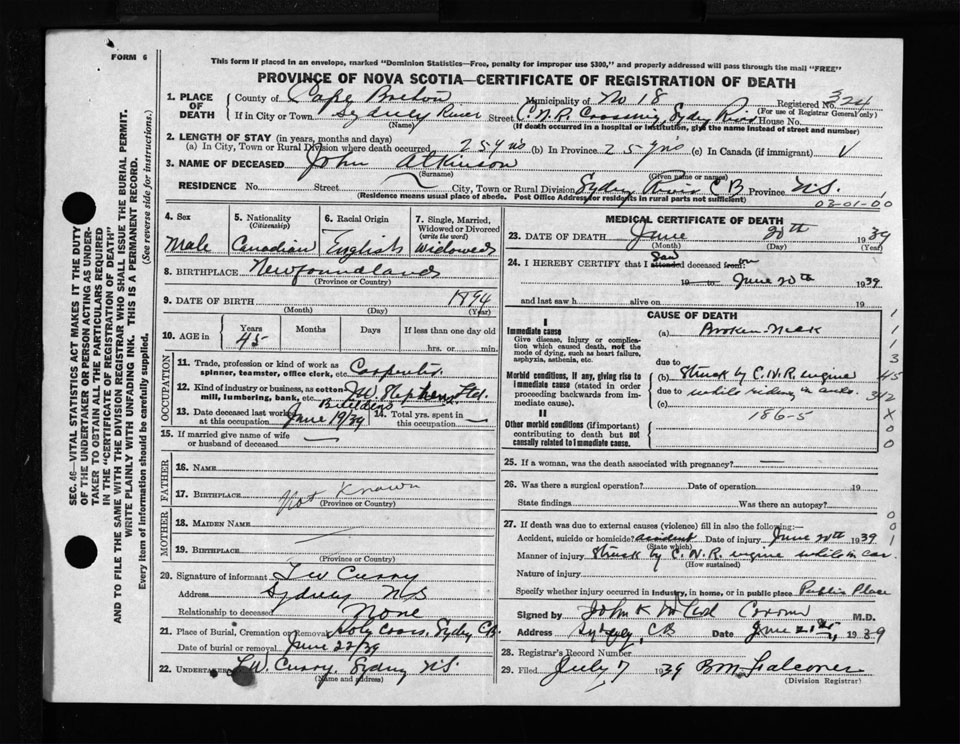 FORM 6
This form if placed in an envelope, marked "Dominion Statistics—Free, penalty for improper use $300," and properly addressed will pass through the mail "FREE"
PROVINCE OF NOVA SCOTIA—CERTIFICATE OF REGISTRATION OF DEATH
SEC. 46—VITAL STATISTICS ACT MAKES IT THE DUTY
OF THE UNDERTAKER OR PERSON ACTING AS UNDER-
TAKER TO OBTAIN ALL THE PARTICULARS REQUIRED
IN THE "CERTIFICATE OF REGISTRATION OF DEATH"
AND TO FILE THE SAME WITH THE DIVISION REGISTRAR WHO SHALL ISSUE THE BURIAL PERMIT.
WRITE PLAINLY WITH UNFADING INK. THIS IS A PERMANENT RECORD.
Every item of information should be carefully supplied. (See reverse side for instructions.)
1. PLACE OF DEATH County of Cape Breton Municipality of No 18 Registered No. 324
(For use of Registrar General only)
If in City or Town Sydney River (Name) Street C.N.R. Crossing, Sydney River House No.
(If death occurred in a hospital or institution, give the name instead of street and number)
2. LENGTH OF STAY (in years, months and days)
(a) In City, Town or Rural Division where death occurred 25 yrs (b) In Province 25 yrs (c) In Canada (if immigrant) V
3. NAME OF DECEASED John Atkinson
(Surname) (Given name or names)
RESIDENCE No. Street City, Town or Rural Division Sydney River CB Province N.S.
(Residence means usual place of abode. Post Office Address for residents in rural parts not sufficient)
03-01-00
4. Sex Male
5. Nationality (Citizenship) Canadian
6. Racial Origin English
7. Single, Married, Widowed or Divorced (write the word) Widowed
8. BIRTHPLACE Newfoundland
(Province or Country)
9. DATE OF BIRTH 1894
(Month) (Day) (Year)
10. AGE in Years 45 Months Days If less than one day
hrs. or min.
OCCUPATION
11. Trade, profession or kind of work as spinner, teamster, office clerk, etc. Carpenter
12. Kind of industry or business, as cotton mill, lumbering, bank, etc. J.W. Stephens Ltd. Builders
13. Date deceased last worked at this occupation June 19/39 14. Total yrs. spent in this occupation —
15. If married give name of wife or husband of deceased —
FATHER
16. NAME
17. BIRTHPLACE Not Known
(Province or Country)
MOTHER
18. MAIDEN NAME
19. BIRTHPLACE
(Province or Country)
20. Signature of informant T W Curry
Address Sydney NS
Relationship to deceased None
21. Place of Burial, Cremation or Removal Holy Cross, Sydney CB.
Date of burial or removal June 22/39
22. UNDERTAKER T.W. Curry, Sydney N.S.
(Name and address)
MEDICAL CERTIFICATE OF DEATH
23. DATE OF DEATH June 20th 1939
(Month) (Day) (Year)
24. I HEREBY CERTIFY that I saw attended deceased from on
19 to June 20th 1939
and last saw h alive on 19
CAUSE OF DEATH
I
Immediate cause
Give disease, injury or complication which caused death, not the mode of dying, such as heart failure, asphyxia, asthenia, etc.
(a) Broken Neck
due to
Morbid conditions, if any, giving rise to immediate cause (stated in order proceeding backwards from immediate cause).
(b) Struck by C.N.R. engine
due to while riding in auto
(c)
186-5
II
Other morbid conditions (if important) contributing to death but not causally related to immediate cause.
1
1
1
3
45
342
X
0
0
25. If a woman, was the death associated with pregnancy? —
26. Was there a surgical operation? Date of operation 19
State findings Was there an autopsy?
27. If death was due to external causes (violence) fill in also the following:—
Accident, suicide or homicide? accident Date of injury June 20th 1939
(State which)
Manner of injury Struck by C.N.R. engine while in car.
(How sustained)
Nature of injury
Specify whether injury occurred in industry, in home, or in public place Public Place
0
0
1
Signed by John K McLeod Coroner M.D.
Address Sydney, CB Date June 21st, 1939
28. Registrar's Record Number
29. Filed July 7 1939 B M Falconer
(Division Registrar)